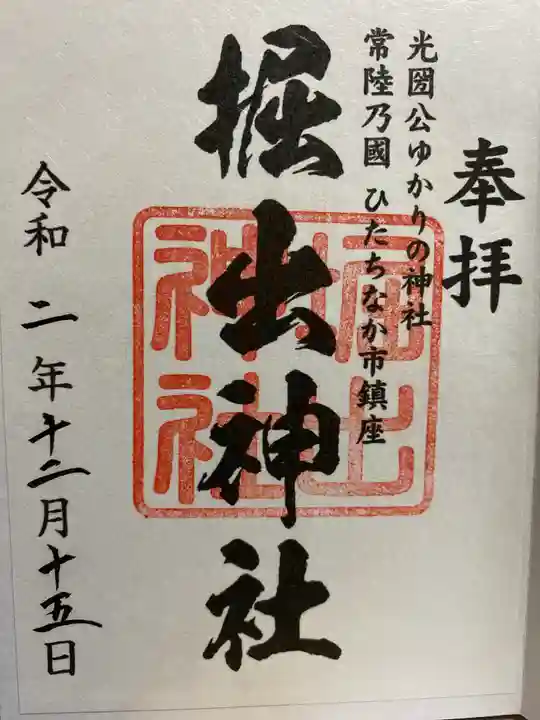 奉拝
光圀公ゆかりの神社
常陸乃國 ひたちなか市鎮座
掘出神社
掘出
神社
令和 二 年 十二月 十五日